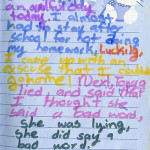 an awful day
today. I almost
had to stay after
school for not doing
my homework, Luckily,
I came up with an
excuse that I could
go home! Next, Tanya
lied and said I that
I thought she
said a bad word,
she was lying,
she did say a
bad word.